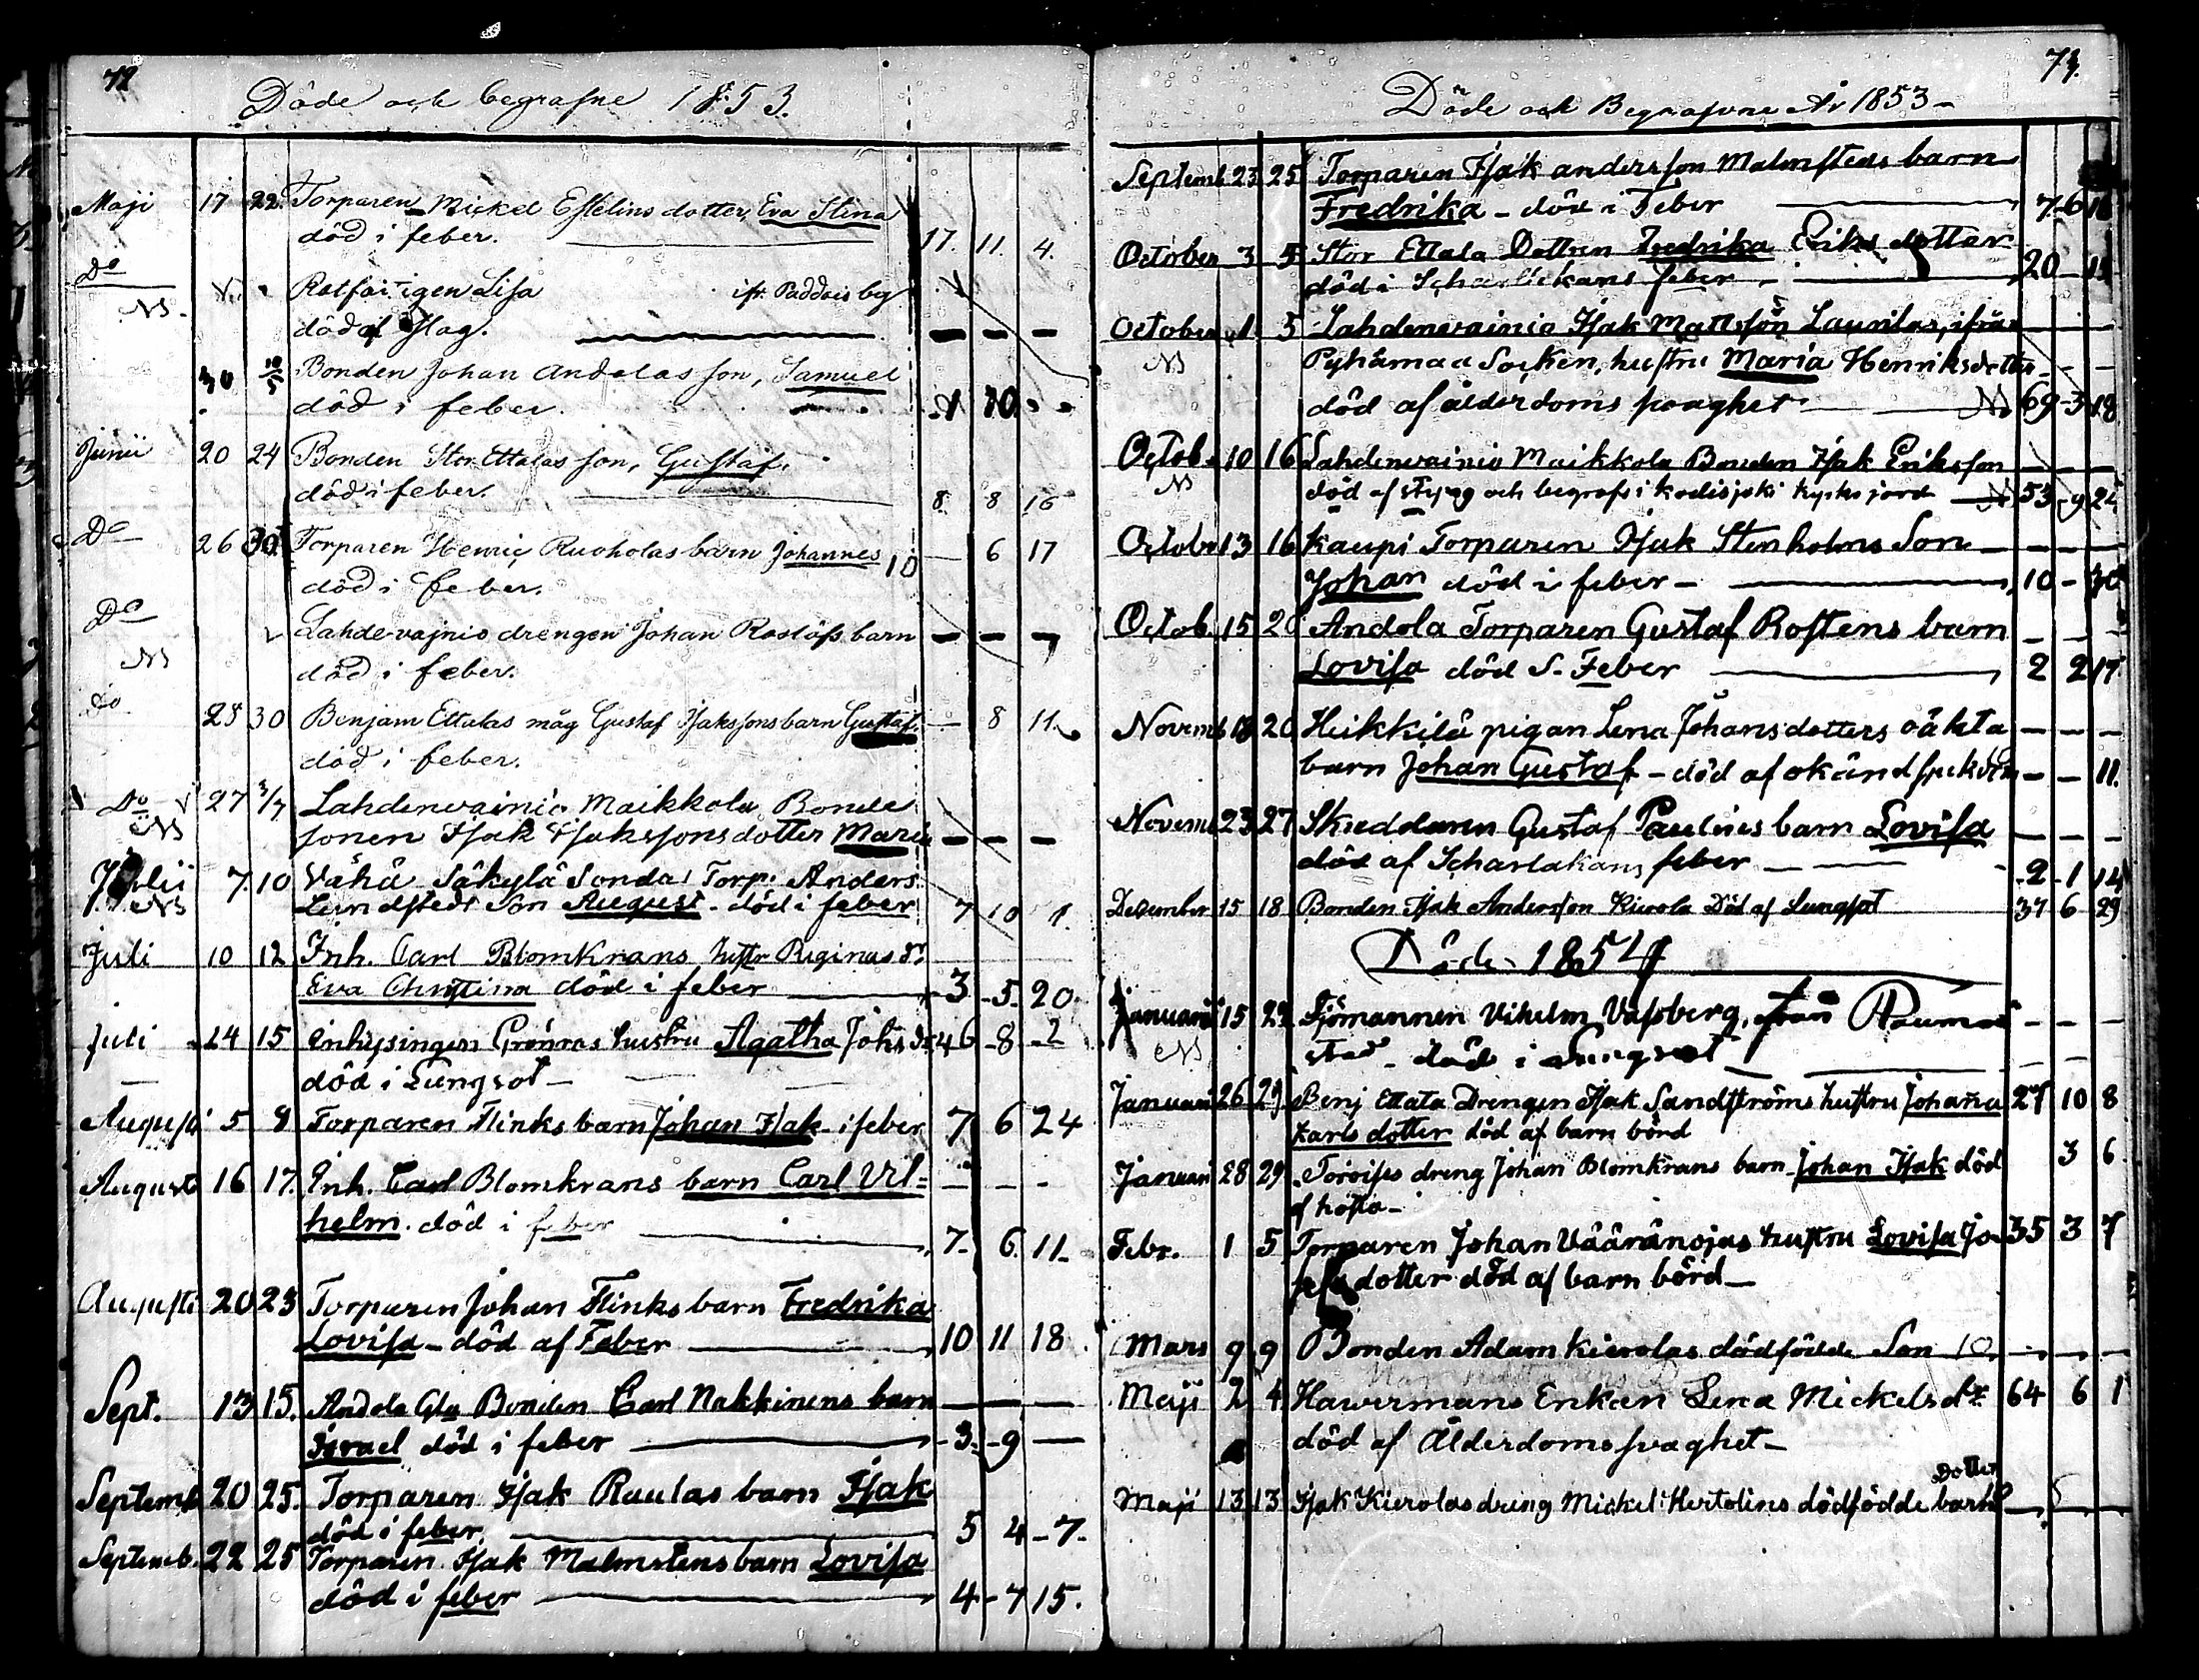 72
Döde och begrafne 1853.
Maji 17 22. Torparen Mickel Eſtelins dotter, Eva Stina
död i feber. 17. 11. 4.
Do Lisa ifr. Paddais by
NB. död af Slag. — — —
30 Bonden Johan Andolas son, Samuel
död i feber. 1 10
Junii 20 24 Bonden Stor Ettalas son, Gustaf.
död i feber. 8. 8 16
Do 26 30 Torparen Henric Ruoholas barn Johannes 10 — 6 17
död i feber.
Do Lahdevajnio drengen Johan barn — —
NB död i feber.
Do 28 30 Benjam Ettalas måg Gustaf Isakssons barn Gustaf. — 8 11
död i feber.
Do 27 3/7 Lahdenvainio Maikkola Bonde
NB sonen Isak Isakssons dotter Maria — — —
Julii 7. 10 Vähä Säkylä Sonda Torp. Anders
NB Lundstedt Son August - död i feber 7 10 1.
Juli 10 12 Inh. Carl Blomkrans hustr Reginas dr
Eva Christina död i feber 3 - 5. 20.
Juli 14 15 Inhysingen Grönros hustru Agatha Johs dr 46 - 8 - 2
död i Lungsot —
Augusti 5 8 Torparen Flinks barn Johan Isak - i feber 7 6 24
Augusti 16 17. Inh. Carl Blomkrans barn Carl Vil= — — -
helm. död i feber 7. 6. 11
Augusti 20 23 Torparen Johan Flinks barn Fredrika
Lovisa - död af Feber 10 11 18
Sept. 13 15. Andola Bonden Carl Nakkinens barn — — —
Israel död i feber 3. - 9 —
Septemb 20 25. Torparen Isak Raulas barn Isak
död i feber 5 4 - 7.
Septemb. 22 25 Torparen Isak Malmstens barn Lovisa
död i feber 4 - 7 15.
73.
Döde och Begrafvne År 1853 -
Septemb 23 25 Torparen Isak andersson Malmsteds barn
Fredrika - död i Feber 7 - 6 16
October 3 5 Stor Ettala Dottren Fredrika Eriks dotter
död i feber 20
October 1 5 Lahdenvainio Isak Mattsson Laurilas, ifrån
NB Pyhämaa Socken, hustru Maria Henriksdotter - -
död af ålderdoms svaghet 69 - 3 18
Octob. 10 16 Lahdenvainio Maikkola Bonden Isak Eriksson — — —
NB död af och begrafs i Kodisjoki kyrko jord 53 - 9 24
Octobr 13 16 Kaupi Torparen Isak Stenholms Son — — —
Johan död i feber - 10 - 30
Octob. 15 Andola Torparen Gustaf Rostens barn — — —
Lovisa död i Feber 2 2 17
Novemb 18 20 Heikkilä pigan Lena Johansdotters oäkta — — —
barn Johan Gustaf - död af okänd sjukdom — — 11.
Novemb 23 27 Skreddaren Gustaf Paulins barn Lovisa — — —
död af Scharlakans feber — 2 - 1 14
December 15 18 Bonden Isak Andersson Kierola Död af Lungsot 37 6 29
Döde 1854
Januari 15 Sjömannen Vilhelm Vasberg, från Raumo — — —
NB stad - död i Lungsot
Januari 26 29 Benj Ettala Drengen Isak Sandströms hustru Johana 27 10 8
Karls dotter död af barn börd
Januari 28 29 dreng Johan Blomkrans barn - Johan Isak död 3 6.
af hosta -
Febr. 1 5 Torparen Johan Vääränojas hustru Lovisa Jo- 35 3 7
sefs dotter död af barn börd —
Mars 9 9 Bonden Adam Kierolas dödfödde Son — — —
Maji 2 4 Havermans Enkan Lena Mickels dr 64 6 1
död af Ålderdoms svaghet —
Dotter
Maji 13 13 Isak Kierolas dräng Mickel Hertolins dödfödde barn — —